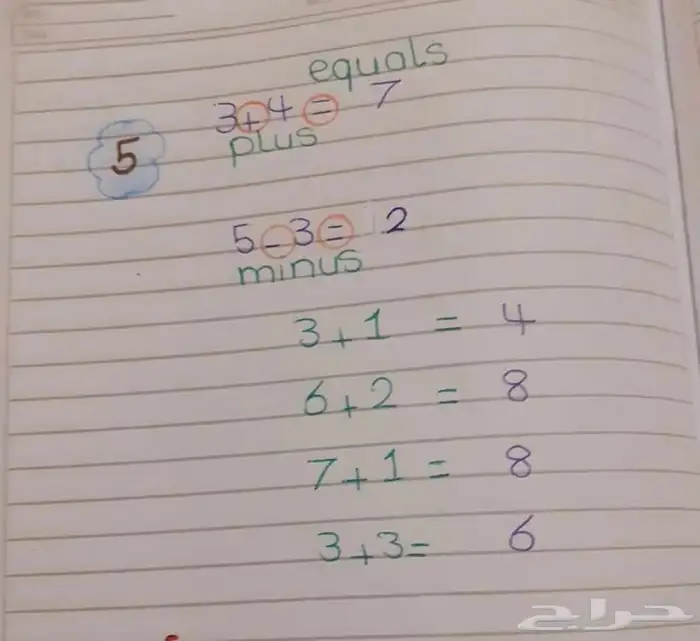 equals
3+4= 7
plus
5
5-3= 2
minus
3+1 = 4
6+2 = 8
7+1= 8
3+3= 6
حراج